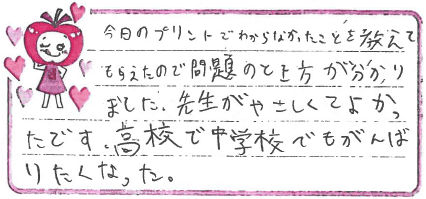 今日のプリントでわからなかったことを教えて
もらえたので問題のとき方が分かり
ました。先生がやさしくてよかっ
たです。高校で中学校でもがんば
りたくなった。